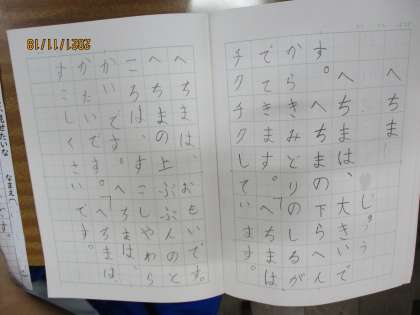 へちま
へちまは、大きいで
す。へちまの下らへん
からきみどりのしるが
できます。「へちまは
チクチクしています。
へちまは、おもいです。
へちまの上ぶぶんのと
ころは、すこしやわら
かいです。「へちまは、
かたいです。「へちまは、
すこしくさいです。
見せたいな
なまえ
2021/11/18